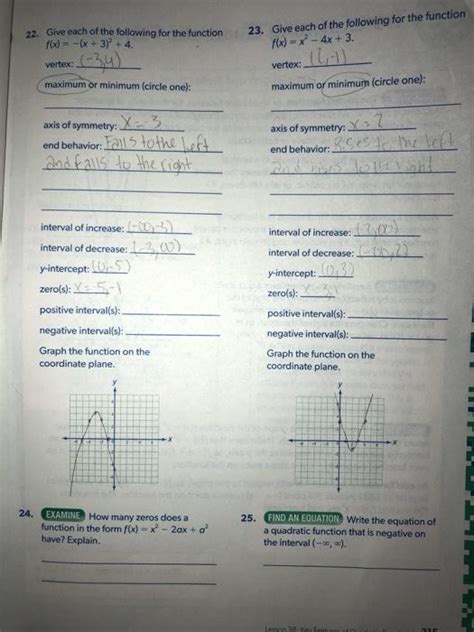 22. Give each of the following for the function
f(x) = −(x + 3)² + 4.
vertex: (-3,4)
maximum or minimum (circle one):
axis of symmetry: X=-3
end behavior: Falls to the left
and falls to the right
interval of increase: (-∞,-3)
interval of decrease: (-3,∞)
y-intercept: (0,-5)
zero(s): x=-5,-1
positive interval(s):
negative interval(s):
Graph the function on the
coordinate plane.
y
x
24. EXAMINE How many zeros does a
function in the form f(x) = x² − 2ax + a²
have? Explain.
23. Give each of the following for the function
f(x) = x² − 4x + 3.
vertex: (2,-1)
maximum or minimum (circle one):
axis of symmetry: X=2
end behavior: Rises to the left
and rises to the right
interval of increase: (2,∞)
interval of decrease: (-∞,2)
y-intercept: (0,3)
zero(s):
positive interval(s):
negative interval(s):
Graph the function on the
coordinate plane.
y
x
25. FIND AN EQUATION Write the equation of
a quadratic function that is negative on
the interval (−∞, ∞).
Lesson 38: Key Features of